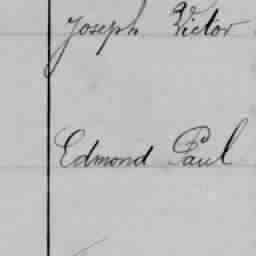 Joseph Victor
Edmond Paul